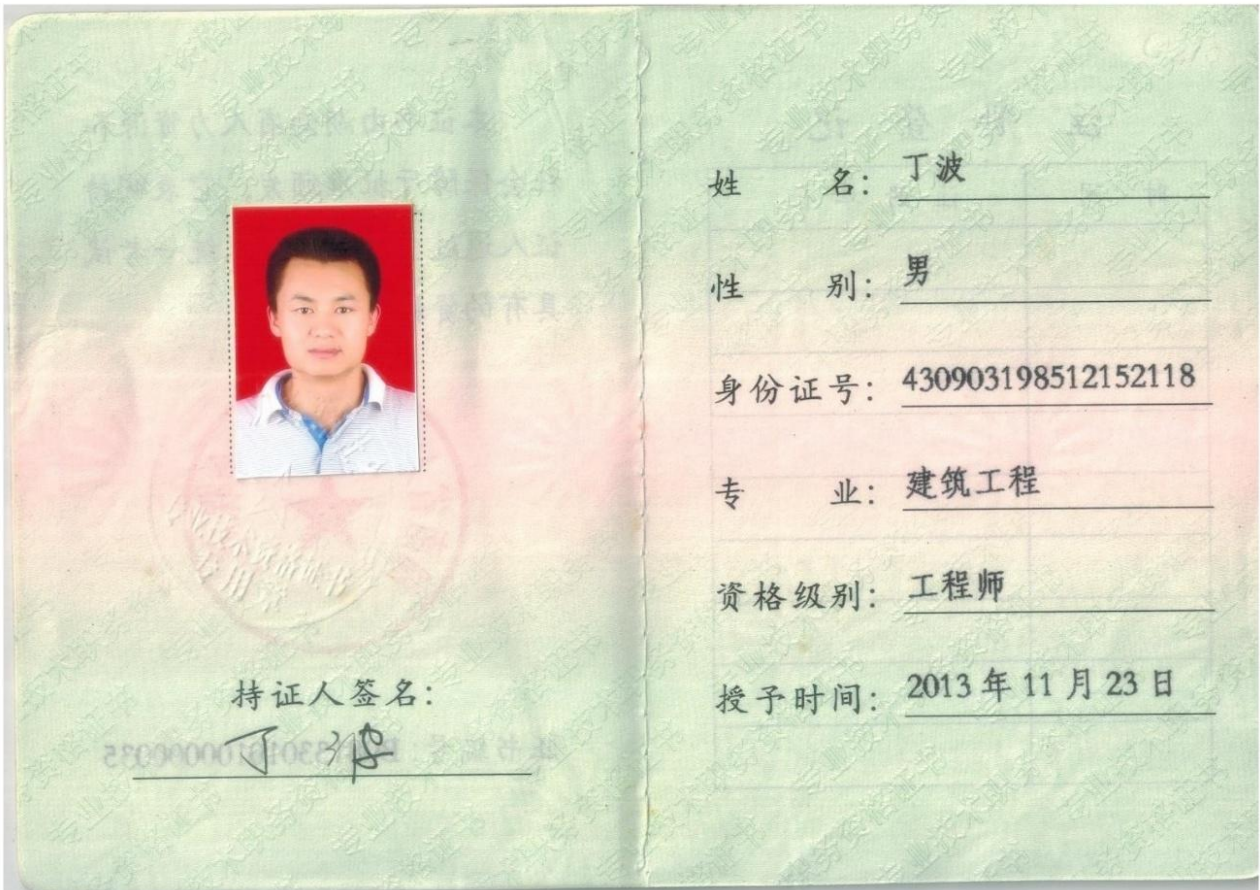 专业技术资格证书
专用章
持证人签名：
丁波
姓 名：丁波
性 别：男
身份证号：430903198512152118
专 业：建筑工程
资格级别：工程师
授予时间：2013 年 11 月 23 日